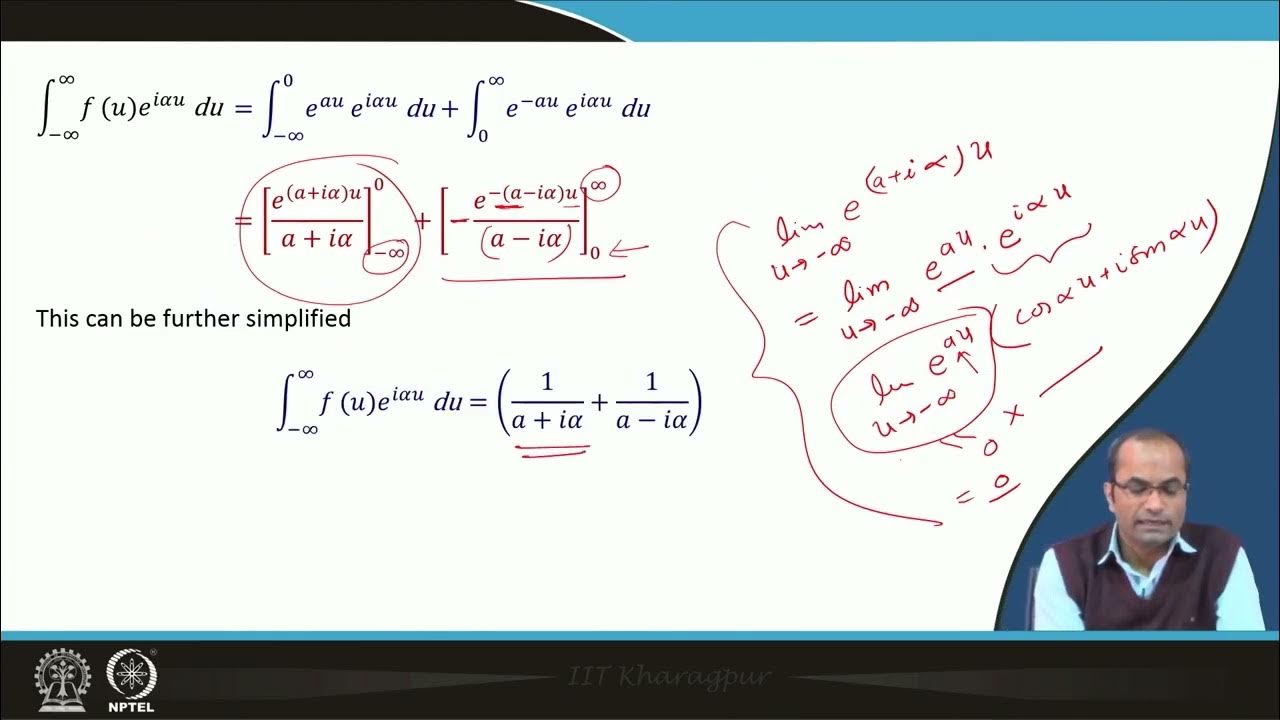 ∫_{-∞}^{∞} f (u)e^{iαu} du = ∫_{-∞}^{0} e^{au} e^{iαu} du + ∫_{0}^{∞} e^{-au} e^{iαu} du
= [e^{(a+iα)u}/(a + iα)]_{-∞}^{0} + [-e^{-(a-iα)u}/(a - iα)]_{0}^{∞}
This can be further simplified
∫_{-∞}^{∞} f (u)e^{iαu} du = (1/(a + iα) + 1/(a - iα))
lim_{u→-∞} e^{(a+iα)u}
= lim_{u→-∞} e^{au} . e^{iαu}
lim_{u→-∞} e^{au} (cosαu+isinαu)
0 ×
= 0
IIT Kharagpur
NPTEL